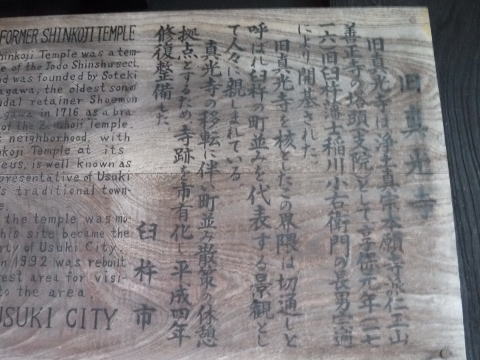 旧真光寺
旧真光寺は、浄土真宗本願寺派仁王山
善正寺の塔頭支院として、享保元年(一七
一六)旧臼杵藩士稲川小右衛門の長男
により開基された。
旧真光寺を核としたこの界隈は切通しと
呼ばれ臼杵の町並みを代表する景観とし
て人々に親しまれている。
真光寺の移転に伴い町並み散策の休憩
拠点とするため、寺跡を市有化し平成四年
修復整備した。
臼杵市
FORMER SHINKOJI TEMPLE
hinkoji Temple was a tem-
le of the Jodo Shinshu sect,
nd was founded by Soteki
agawa, the oldest son of
udal retainer Shoemon
agawa in 1716 as a bra-
of the Zenshoji Temple.
s neighborhood, with
nkoji Temple at its
leus, is well known as
presentative of Usuki
's traditional town-
e.
the temple was mo-
his site became the
rty of Usuki City.
n 1992 was rebuilt
rest area for visi-
to the area
USUKI CITY